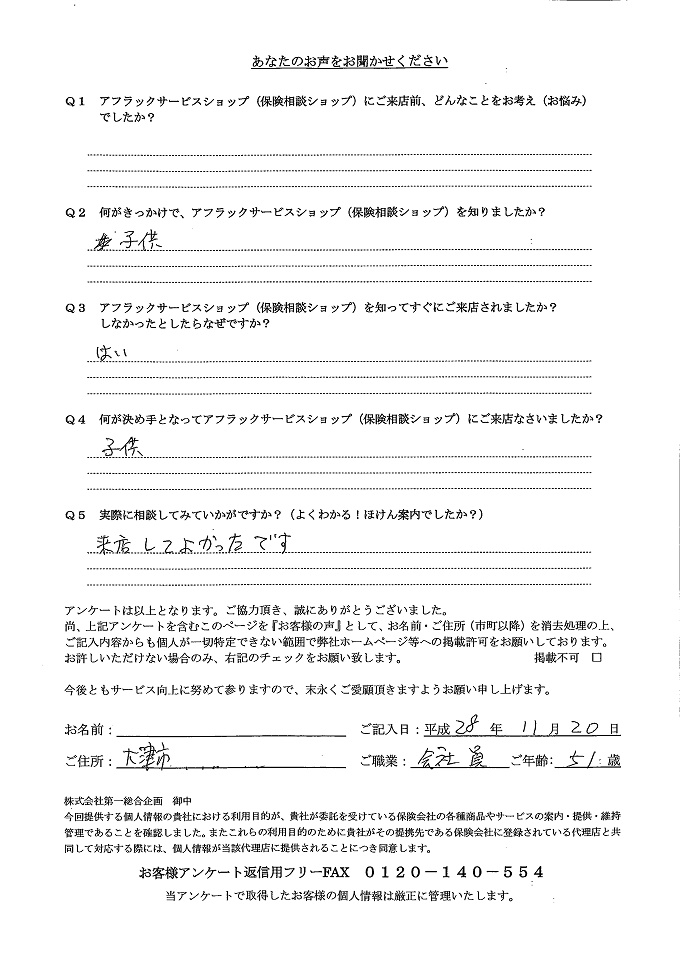 あなたのお声をお聞かせください
Q1 アフラックサービスショップ（保険相談ショップ）にご来店前、どんなことをお考え（お悩み）
でしたか？
Q2 何がきっかけで、アフラックサービスショップ（保険相談ショップ）を知りましたか？
子供
Q3 アフラックサービスショップ（保険相談ショップ）を知ってすぐにご来店されましたか？
しなかったとしたらなぜですか？
はい
Q4 何が決め手となってアフラックサービスショップ（保険相談ショップ）にご来店なさいましたか？
子供
Q5 実際に相談してみていかがですか？（よくわかる！ほけん案内でしたか？）
来店してよかったです
アンケートは以上となります。ご協力頂き、誠にありがとうございました。
尚、上記アンケートを含むこのページを『お客様の声』として、お名前・ご住所（市町以降）を消去処理の上、
ご記入内容からも個人が一切特定できない範囲で弊社ホームページ等への掲載許可をお願いしております。
お許しいただけない場合のみ、右記のチェックをお願い致します。 掲載不可 □
今後ともサービス向上に努めて参りますので、末永くご愛顧頂きますようお願い申し上げます。
お名前： ご記入日：平成 28 年 11 月 20 日
ご住所： 大津市 ご職業： 会社員 ご年齢： 51 歳
株式会社第一総合企画 御中
今回提供する個人情報の貴社における利用目的が、貴社が委託を受けている保険会社の各種商品やサービスの案内・提供・維持
管理であることを確認しました。またこれらの利用目的のために貴社がその提携先である保険会社に登録されている代理店と共
同して対応する際には、個人情報が当該代理店に提供されることにつき同意します。
お客様アンケート返信用フリーFAX 0120－140－554
当アンケートで取得したお客様の個人情報は厳正に管理いたします。